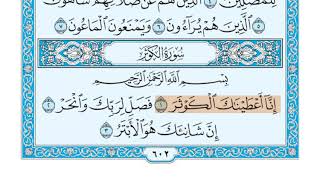 لِّلْمُصَلِّينَ ٤ ٱلَّذِينَ هُمْ عَن صَلَاتِهِمْ سَاهُونَ
٥ ٱلَّذِينَ هُمْ يُرَآءُونَ ٦ وَيَمْنَعُونَ ٱلْمَاعُونَ ٧
سُورَةُ الكَوْثَرِ
بِسْمِ ٱللَّهِ ٱلرَّحْمَٰنِ ٱلرَّحِيمِ
إِنَّآ أَعْطَيْنَٰكَ ٱلْكَوْثَرَ ١ فَصَلِّ لِرَبِّكَ وَٱنْحَرْ ٢
إِنَّ شَانِئَكَ هُوَ ٱلْأَبْتَرُ ٣
٦٠٢